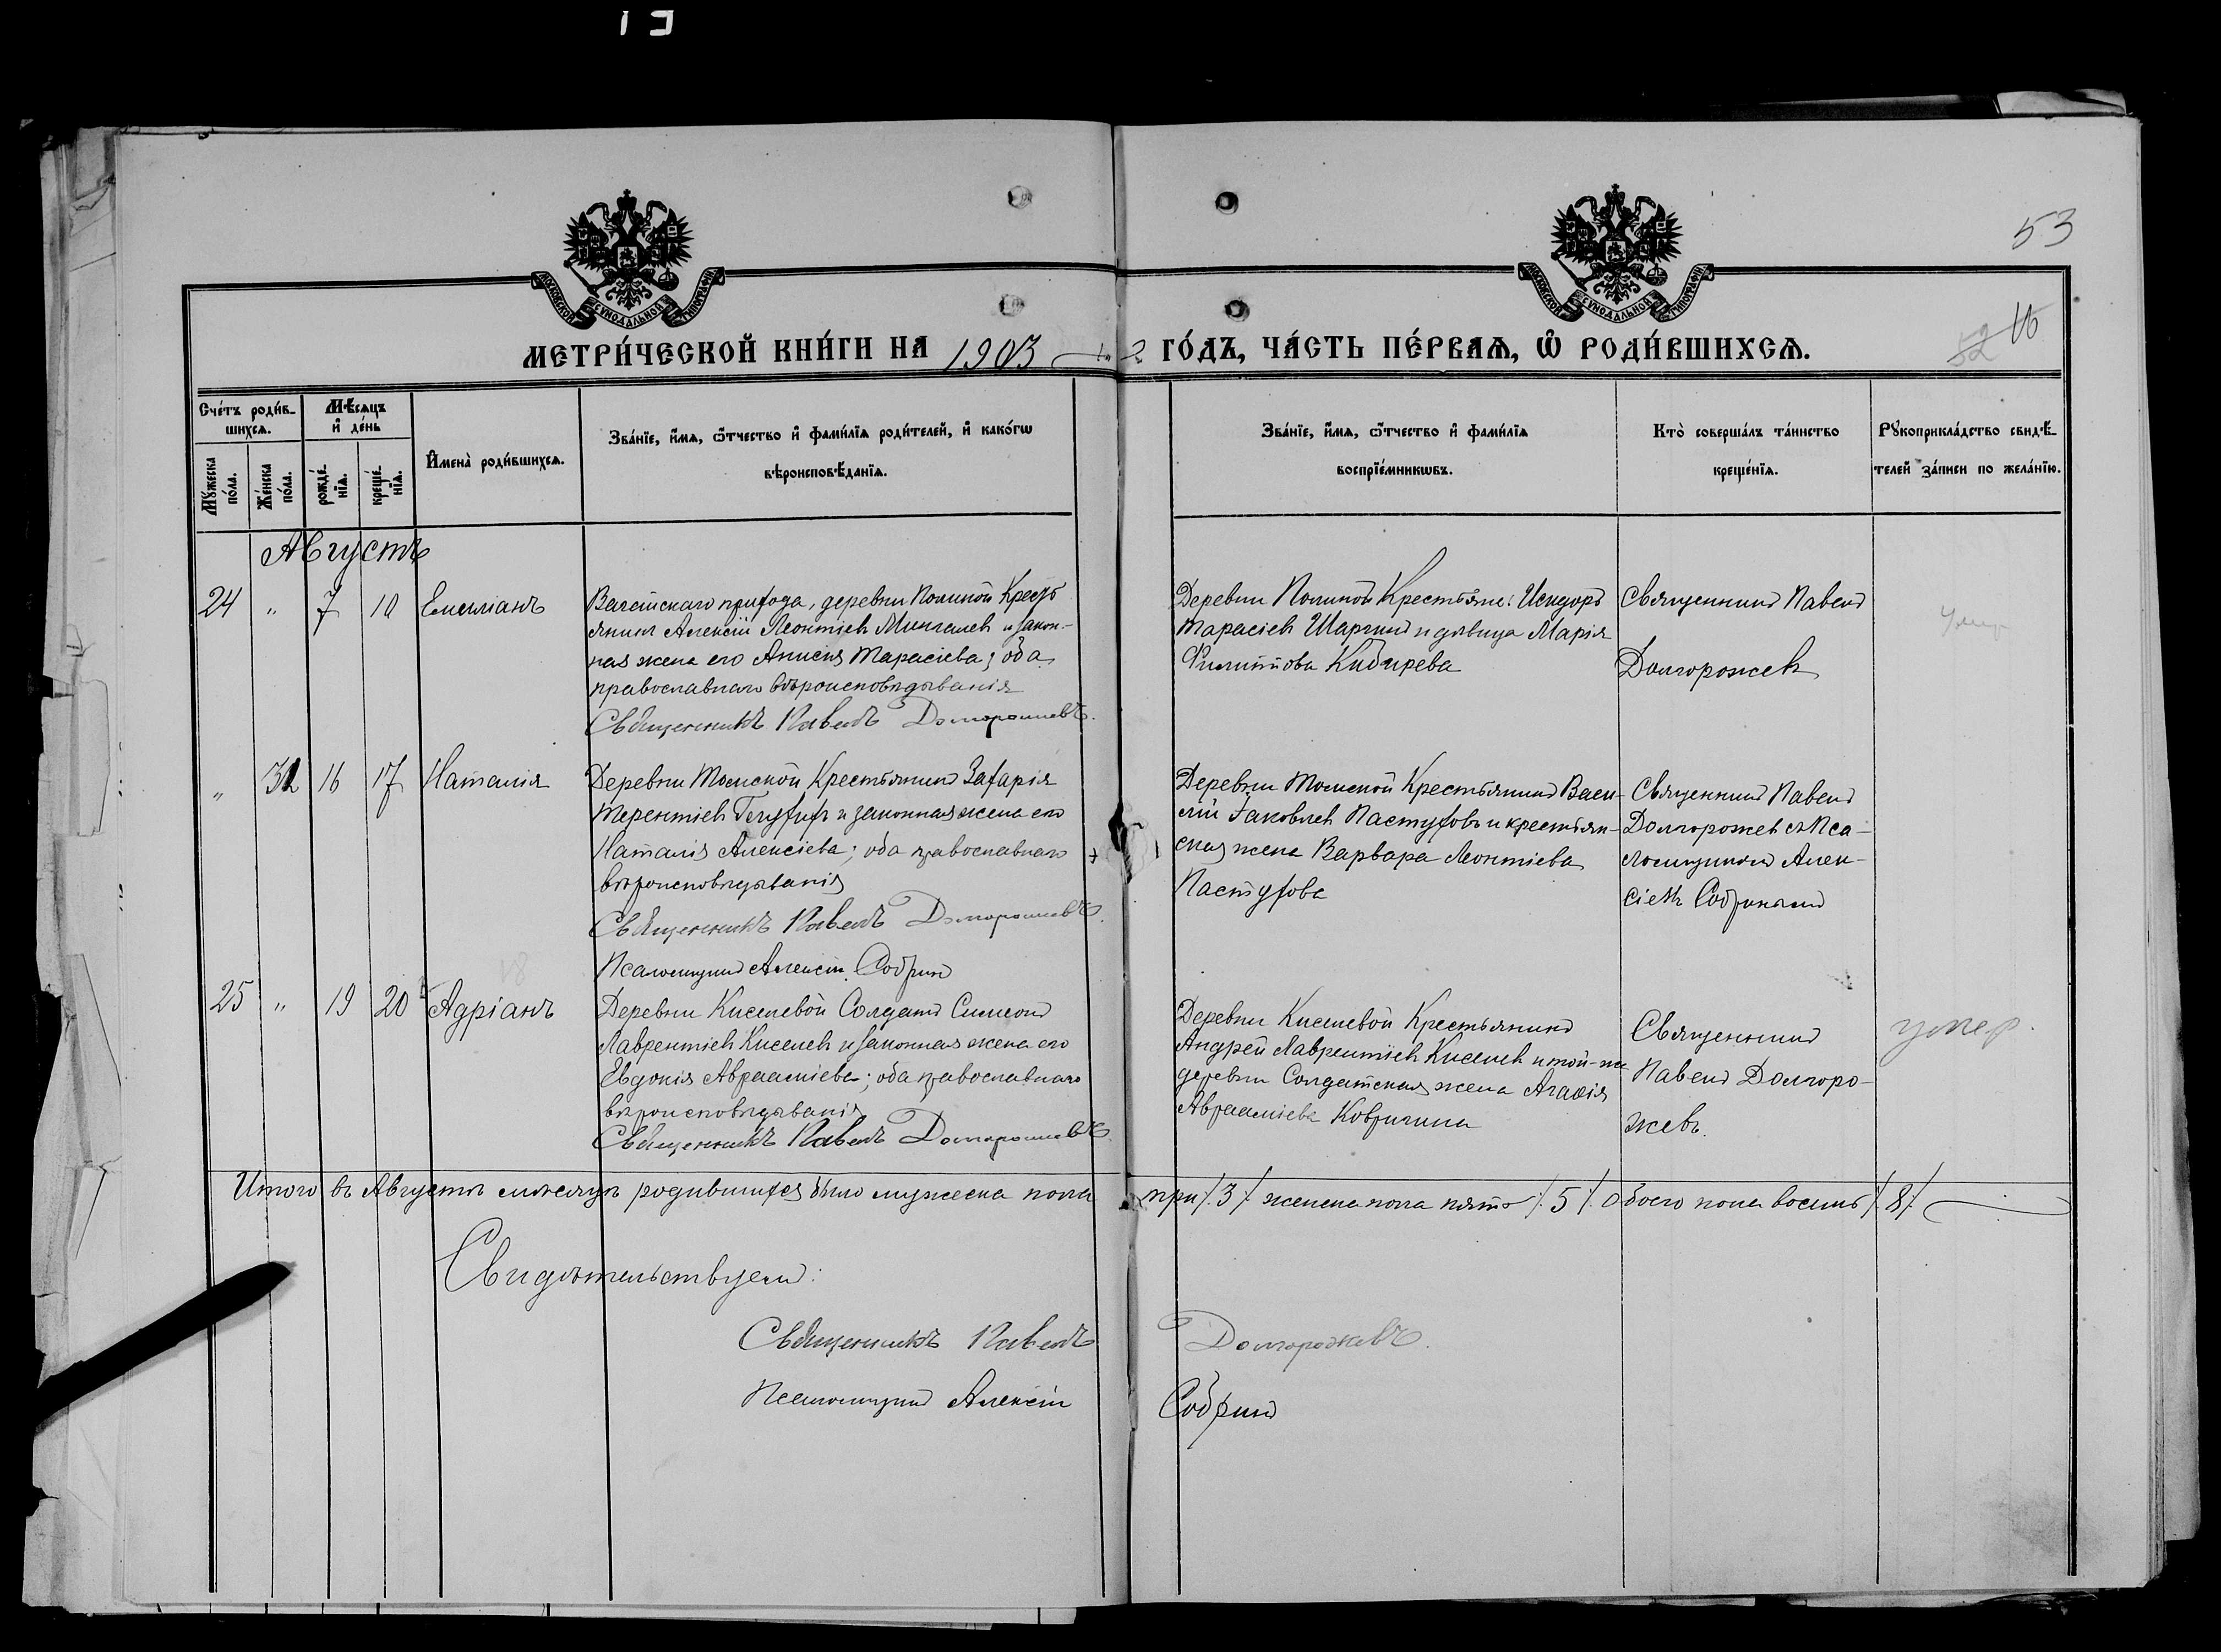 53
16
52
МОСКОВСКОЙ СѴНОДАЛЬНОЙ ТИПОГРАФІИ
МОСКОВСКОЙ СѴНОДАЛЬНОЙ ТИПОГРАФІИ
МЕТРИ́ЧЕСКОЙ КНИ́ГИ НА 1903 ГО́ДЪ, ЧА́СТЬ ПЕ́РВАѦ, Ѡ РОДИ́ВШИХСѦ.
Сче́тъ роди́в-
шихсѧ.
Мѣ́сѧцъ
и҆ де́нь
Мꙋ́жеска
по́ла.
Же́нска
по́ла.
рожде́-
нїѧ.
креще́-
нїѧ.
И҆мена̀ роди́вшихсѧ.
Зва́нїе, и҆́мѧ, ѻ҆́тчество и҆ фамі́лїѧ роди́телей, и҆ како́гѡ
вѣроисповѣ́данїѧ.
Зва́нїе, и҆́мѧ, ѻ҆́тчество и҆ фамі́лїѧ
воспрїе́мникѡвъ.
Кто̀ соверша́лъ та́инство
креще́нїѧ.
Рꙋкоприкла́дство свидѣ́-
телей за́писи по жела́нїю.
Августъ
24 " 7 10 Емиліанъ
Вагайскаго прихода, деревни Поминой Кресть
янинъ Алексій Леонтіев Мингалев и закон-
ная жена его Анисія Тарасіева; оба
православнаго вѣроисповѣдыванія
Священникъ Павелъ Долгорожевъ.
Деревни Поминой Крестьяне: Исидоръ
Тарасіев Шаргинъ и дѣвица Марія
Филиппова Кибирева
Священникъ Павелъ
Долгорожев
" 32 16 17 Наталія
Деревни Томской Крестьянинъ Захарія
Терентіев и законная жена его
Наталія Алексіева; оба православнаго
вѣроисповѣдыванія
Священникъ Павелъ Долгорожевъ.
Псаломщикъ Алексій Собринъ
Деревни Томской Крестьянинъ Васи-
лій Іаковлев Пастуховъ и крестьян-
ская жена Варвара Леонтіева
Пастухова
Священникъ Павелъ
Долгорожев съ Пса-
ломщикомъ Алек-
сіемъ Собринымъ
25 " 19 20 Адріанъ
Деревни Киселевой Солдатъ Симеонъ
Лаврентіев Киселев и законная жена его
Евдокія Авраамиева; оба православнаго
вѣроисповѣдыванія
Священникъ Павелъ Долгорожевъ.
Деревни Киселевой Крестьянинъ
Андрей Лаврентіев Киселев и той-же
деревни Солдатская жена Агафія
Авраамиева Ковригина
Священникъ
Павелъ Долгоро-
жевъ.
умер.
Итого въ Августѣ мѣсяцѣ родившихся было мужеска пола три /.3./ женска пола пять /.5./ Обоего пола восемь /.8./
Свидѣтельствуемъ:
Священникъ Павелъ Долгорожевъ.
Псаломщикъ Алексій Собринъ